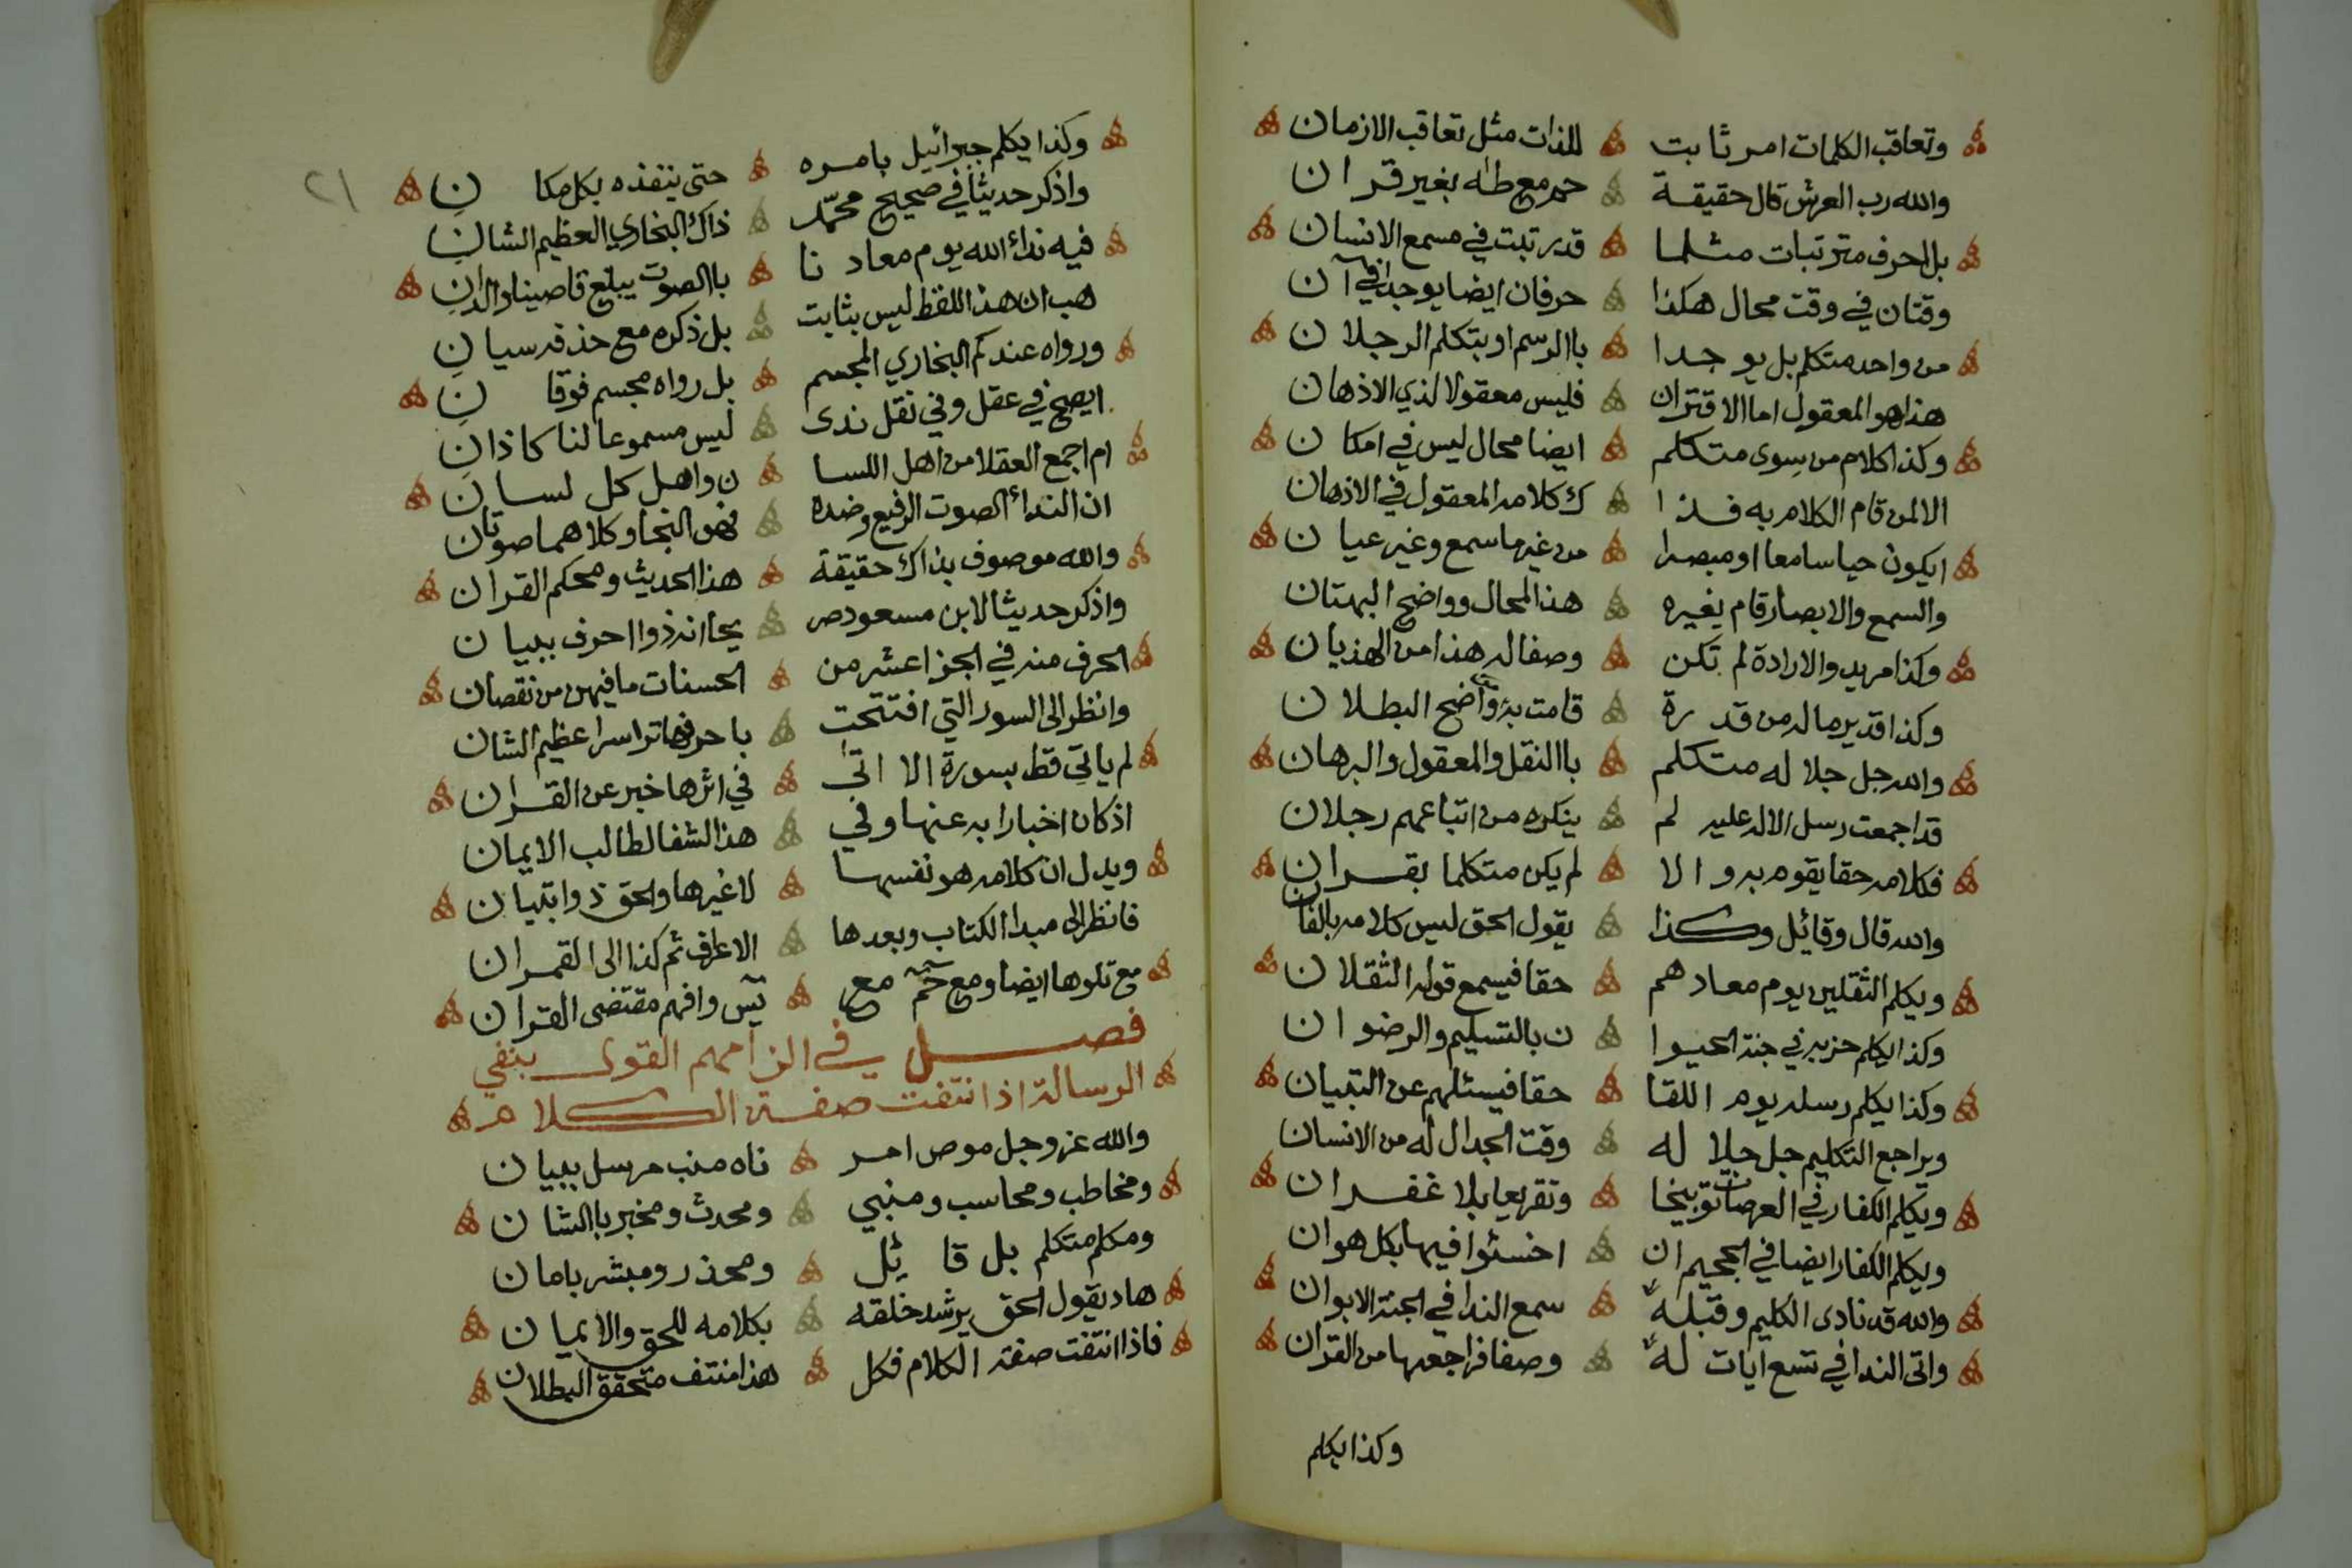 وتعاقب الكلمات امر ثابت للذات مثل تعاقب الازمان
والله رب العرش قال حقيقة حم مع طه بغير قران
بل احرف مترتبات مثلما قد رتبت في مسمع الانسان
وقتان في وقت محال هكذا حرفان ايضا يوجدا في آن
من واحد متكلم بل يوجدا باالرسم او بتكلم الرجلان
هذا هو المعقول اما الاقتران فليس معقولا لذي الاذهان
وكذا كلام من سوى متكلم ايضا محال ليس في امكان
الا لمن قام الكلام به فذا ك كلامه المعقول في الاذهان
ايكون حيا سامعا او مبصرا من غير ما سمع وغير عيان
والسمع والابصار قام بغيره هذا المحال وواضح البهتان
وكذا مريد والارادة لم تكن وصفا له هذا من الهذيان
وكذا قدير ماله من قدرة قامت به واضح البطلان
والله جل جلاله متكلم باالنقل والمعقول والبرهان
قد اجمعت رسل الاله عليه لم ينكره من اتباعهم رجلان
فكلامه حقا يقوم به والا لم يكن متكلما بقران
والله قال وقائل وكذا يقول الحق ليس كلامه بالفان
ويكلم الثقلين يوم معادهم حقا فيسمع قوله الثقلان
وكذا يكلم حزبه في جنة الحيوا ن بالتسليم والرضوان
وكذا يكلم رسله يوم اللقا حقا فيسئلهم عن التبيان
ويراجع التكليم جل جلاله وقت الجدال له من الانسان
ويكلم الكفار في العرصات توبيخا وتقريعا بلا غفران
ويكلم الكفار ايضا في الجحيم ان اخسئوا فيها بكل هوان
والله قد نادى الكليم وقبله سمع الندا في الجنة الابوان
واتى الندا في تسع ايات له وصفا فراجعها من القران
وكذا يكلم
٢١
وكذا يكلم جبرائيل بامره حتى ينفذه بكل مكان
واذكر حديثا في صحيح محمد ذاك البخاري العظيم الشان
فيه نداء الله يوم معادنا باالصوت يبلغ قاصينا والدان
هب ان هذا اللفظ ليس بثابت بل ذكره مع حذفه سيان
ورواه عندكم البخاري المجسم بل رواه مجسم فوقان
ايصح في عقل وفي نقل ندى ليس مسموعا لنا كاذان
ام اجمع العقلا من اهل اللسا ن واهل كل لسان
ان النداء الصوت الرفيع وضده فهو النجا وكلاهما صوتان
والله موصوف بذاك حقيقة هذا الحديث ومحكم القران
واذكر حديثا لابن مسعود صر يحا انه ذوا احرف ببيان
الحرف منه في الجزا عشر من الحسنات ما فيهن من نقصان
وانظر الى السور التي افتتحت باحرفها تراسرا عظيم الشان
لم يات قط بسورة الا اتى في اثرها خبر عن القران
اذ كان اخبارا به عنها وفي هذا الشفا لطالب الايمان
ويدل ان كلامه هو نفسها لا غيرها والحق ذوا تبيان
فانظر الى مبدا الكتاب وبعدها الاعراف ثم كذا الى القمران
مع تلوها ايضا ومع حم مع يس وافهم مقتضى القران
فصل في الزامهم القول بنفي
الرسالة اذا انتفت صفة الكلام
والله عز وجل موص امر ناه منب مرسل ببيان
ومخاطب ومحاسب ومنبي ومحدث ومخبر باالشان
ومكلم متكلم بل قائل ومحذر ومبشر بامان
هاد يقول الحق يرشد خلقه بكلامه للحق والايمان
فاذا انتفت صفة الكلام فكل هذا منتف متحقق البطلان